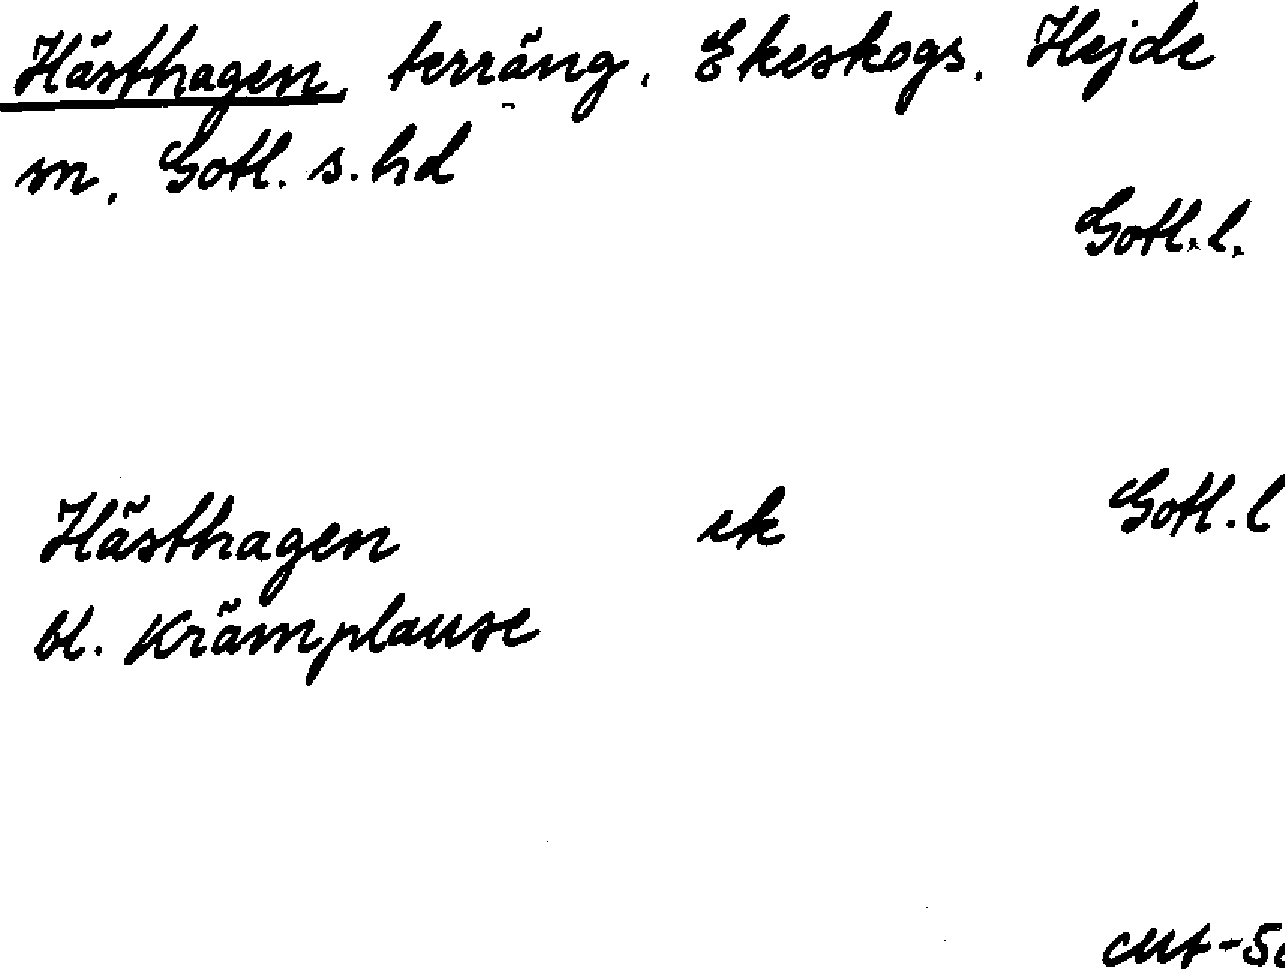 Hästhagen, terräng, Ekeskogs, Hejde
sn, Gotl. s. hd
Gotl. l.
Hästhagen ek Gotl. l
bl. Krämplause